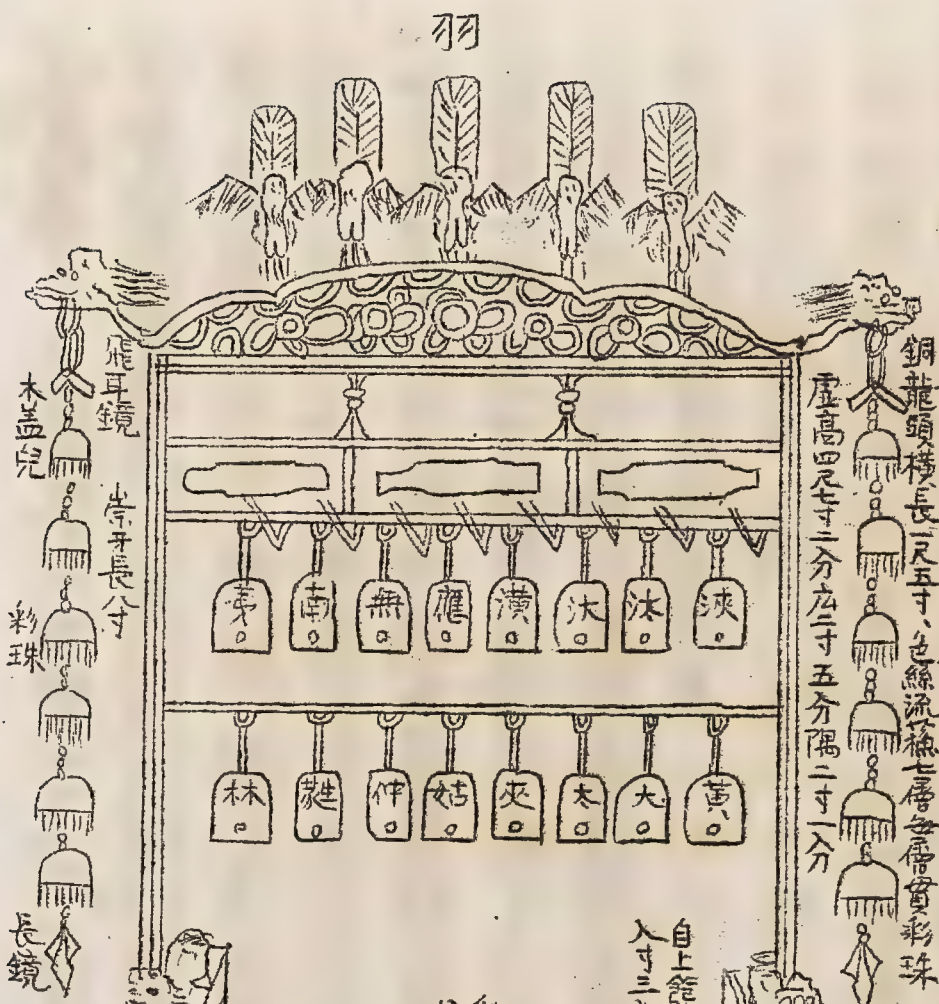 羽
銅龍頭橫長一尺五寸、色絲流蘇七層每層貫彩珠
虛高四尺七寸二分広二寸五分隅二寸一分
飛耳鏡
崇牙長八寸
木盖兒
彩珠
長鏡
夷 南 無 應 潢 汏 汰 浹
林 蕤 仲 姑 夾 太 大 黃
自上
八寸三